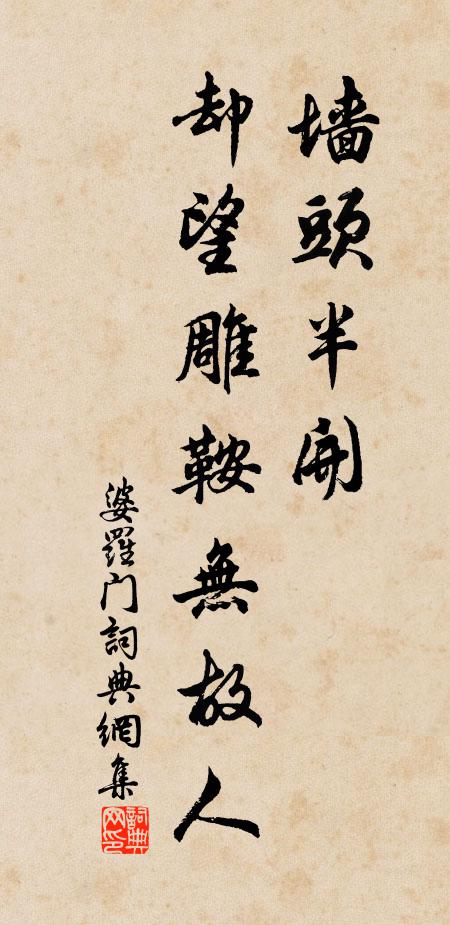 墙頭半開
却望雕鞍無故人
婆羅门詞典網集
詞典网印